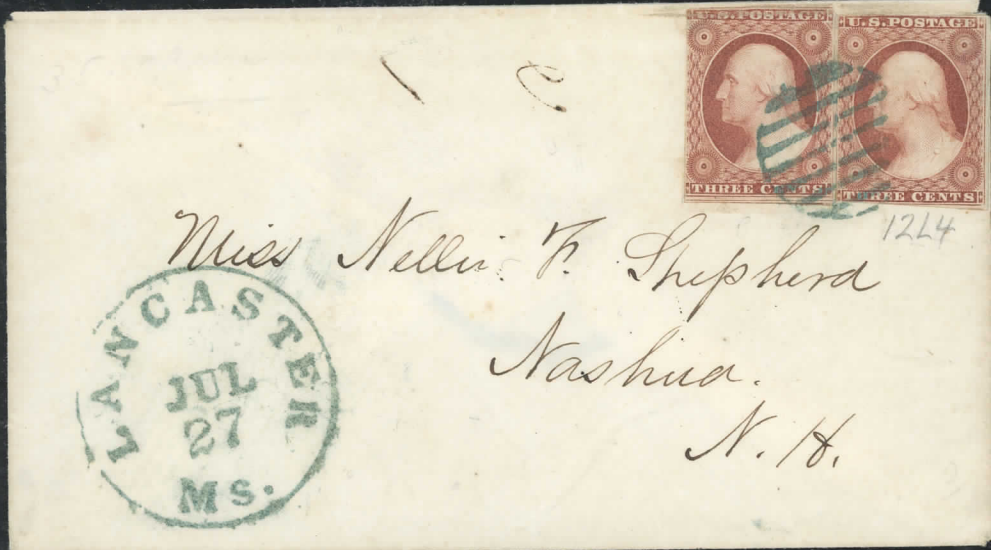 U.S. POSTAGE
THREE CENTS
U.S. POSTAGE
THREE CENTS
12L4
Miss Nellie F. Shepherd
Nashua.
N. H.
LANCASTER
JUL
27
Ms.